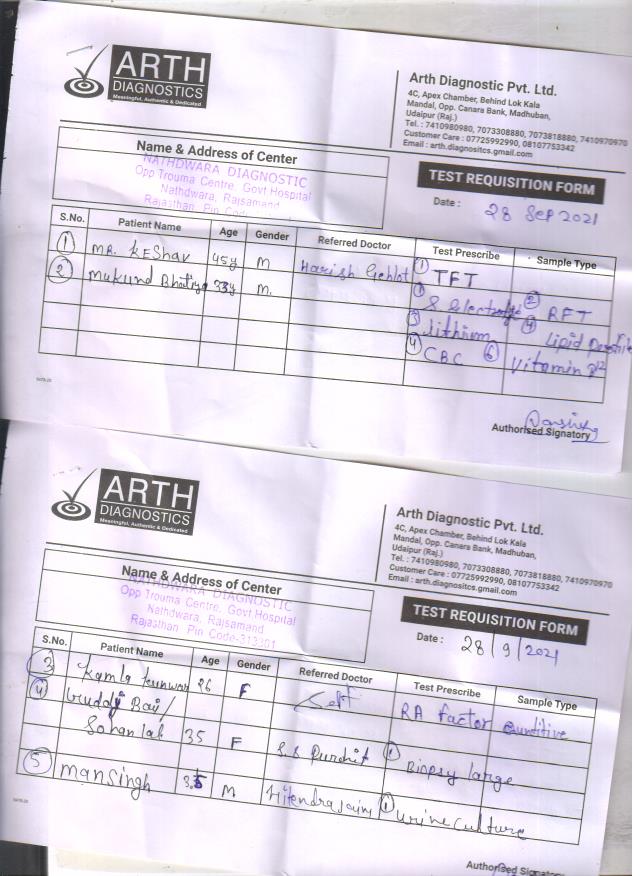 ARTH
DIAGNOSTICS
Meaningful, Authentic & Dedicated
Arth Diagnostic Pvt. Ltd.
4C, Apex Chamber, Behind Lok Kala
Mandal, Opp. Canara Bank, Madhuban,
Udaipur (Raj.)
Tel. : 7410980980, 7073308880, 7073818880, 7410970970
Customer Care : 07725992990, 08107753342
Email : arth.diagnositcs.gmail.com
Name & Address of Center
NATHDWARA DIAGNOSTIC
Opp Trouma Centre, Govt Hospital
Nathdwara, Rajsamand
Rajasthan Pin Code
TEST REQUISITION FORM
Date : 28 Sep 2021
S.No. Patient Name Age Gender Referred Doctor Test Prescribe Sample Type
1 MR. KEShav 45y M Harish Gehlot 1 TFT
2 Mukund Bhatiya 33y M. 1 S Electrolyte 2 RFT
3 Lithium 4 Lipid Profile
4 CBC 6 Vitamin B12
Authorised Signatory
ARTH
DIAGNOSTICS
Meaningful, Authentic & Dedicated
Arth Diagnostic Pvt. Ltd.
4C, Apex Chamber, Behind Lok Kala
Mandal, Opp. Canara Bank, Madhuban,
Udaipur (Raj.)
Tel. : 7410980980, 7073308880, 7073818880, 7410970970
Customer Care : 07725992990, 08107753342
Email : arth.diagnositcs.gmail.com
Name & Address of Center
NATHDWARA DIAGNOSTIC
Opp Trouma Centre, Govt Hospital
Nathdwara, Rajsamand
Rajasthan Pin Code-313301
TEST REQUISITION FORM
Date : 28/9/2021
S.No. Patient Name Age Gender Referred Doctor Test Prescribe Sample Type
3 Kamla kunwar 26 F Self RA factor
4 Guddi Bai/
Sohan lal 35 F S.S Purohit 1 Biopsy large
5 mansingh 35 M Hitendra Jain 1 urine culture
Authorised Signatory